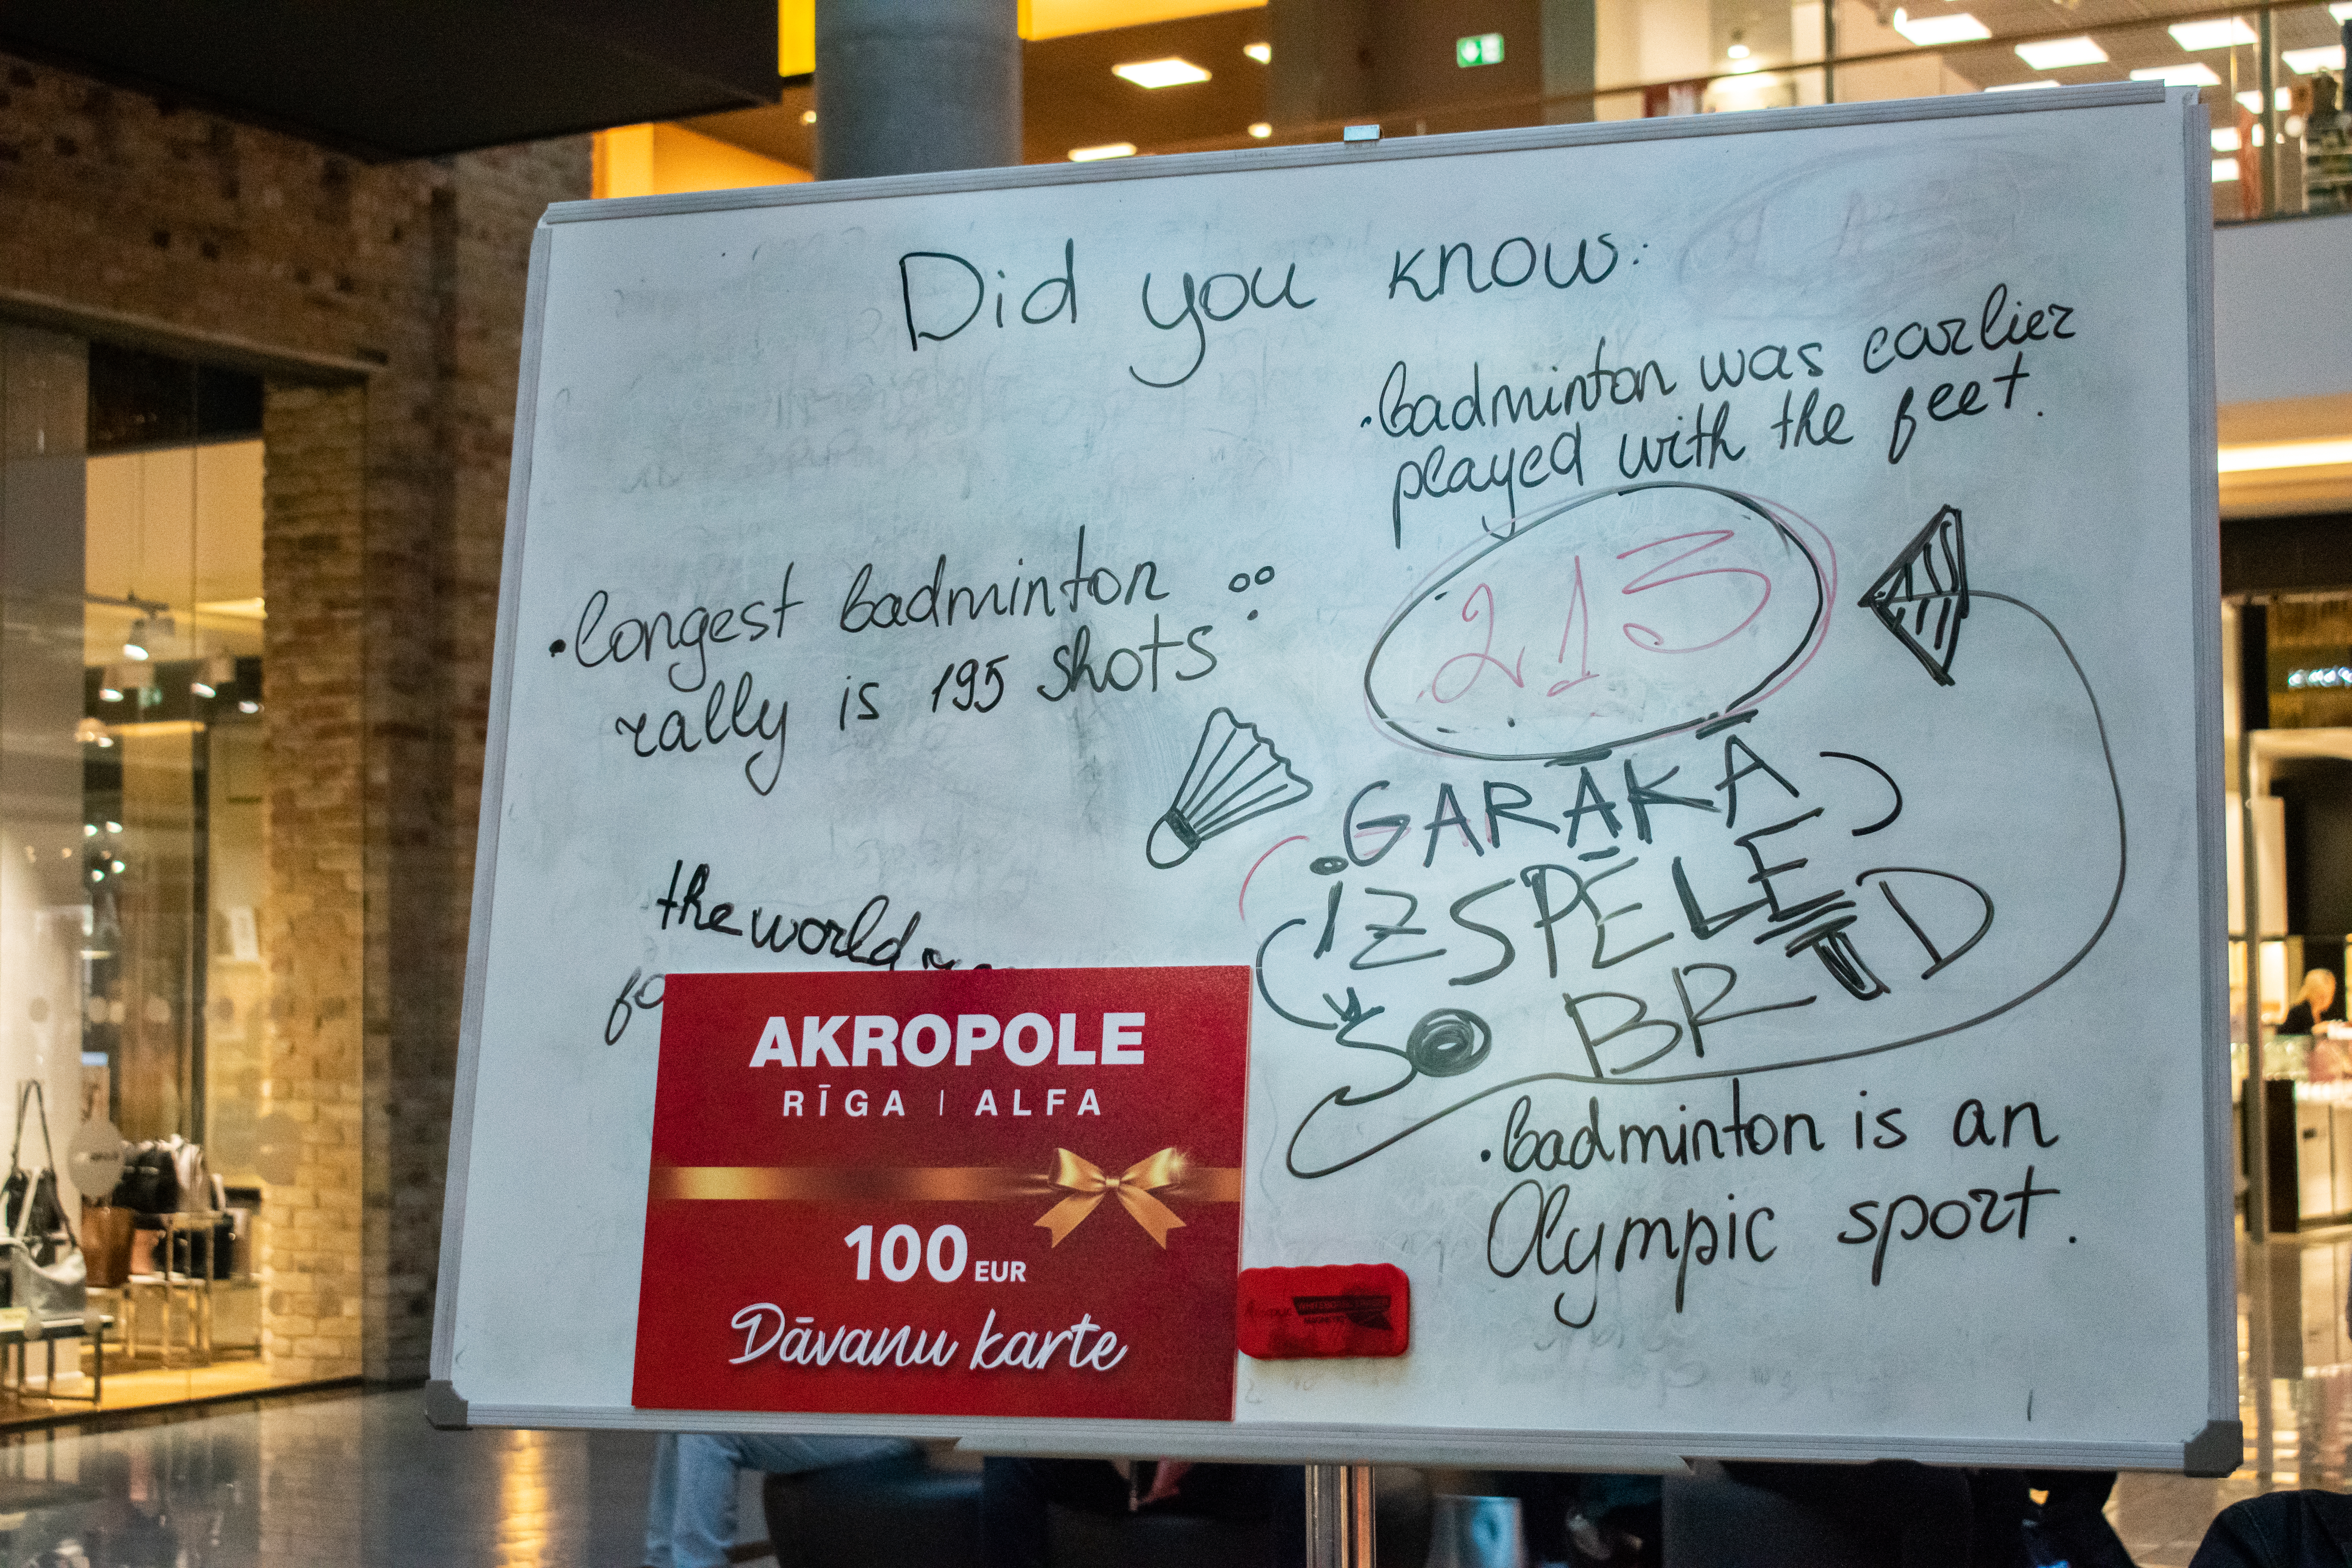 Did you know:
• badminton was earlier
played with the feet.
• longest badminton
rally is 195 shots
213
• GARĀKĀ
IZSPĒLE
ŠO BRĪD
the world
fo
AKROPOLE
RĪGA | ALFA
100 EUR
Dāvanu karte
• badminton is an
Olympic sport.